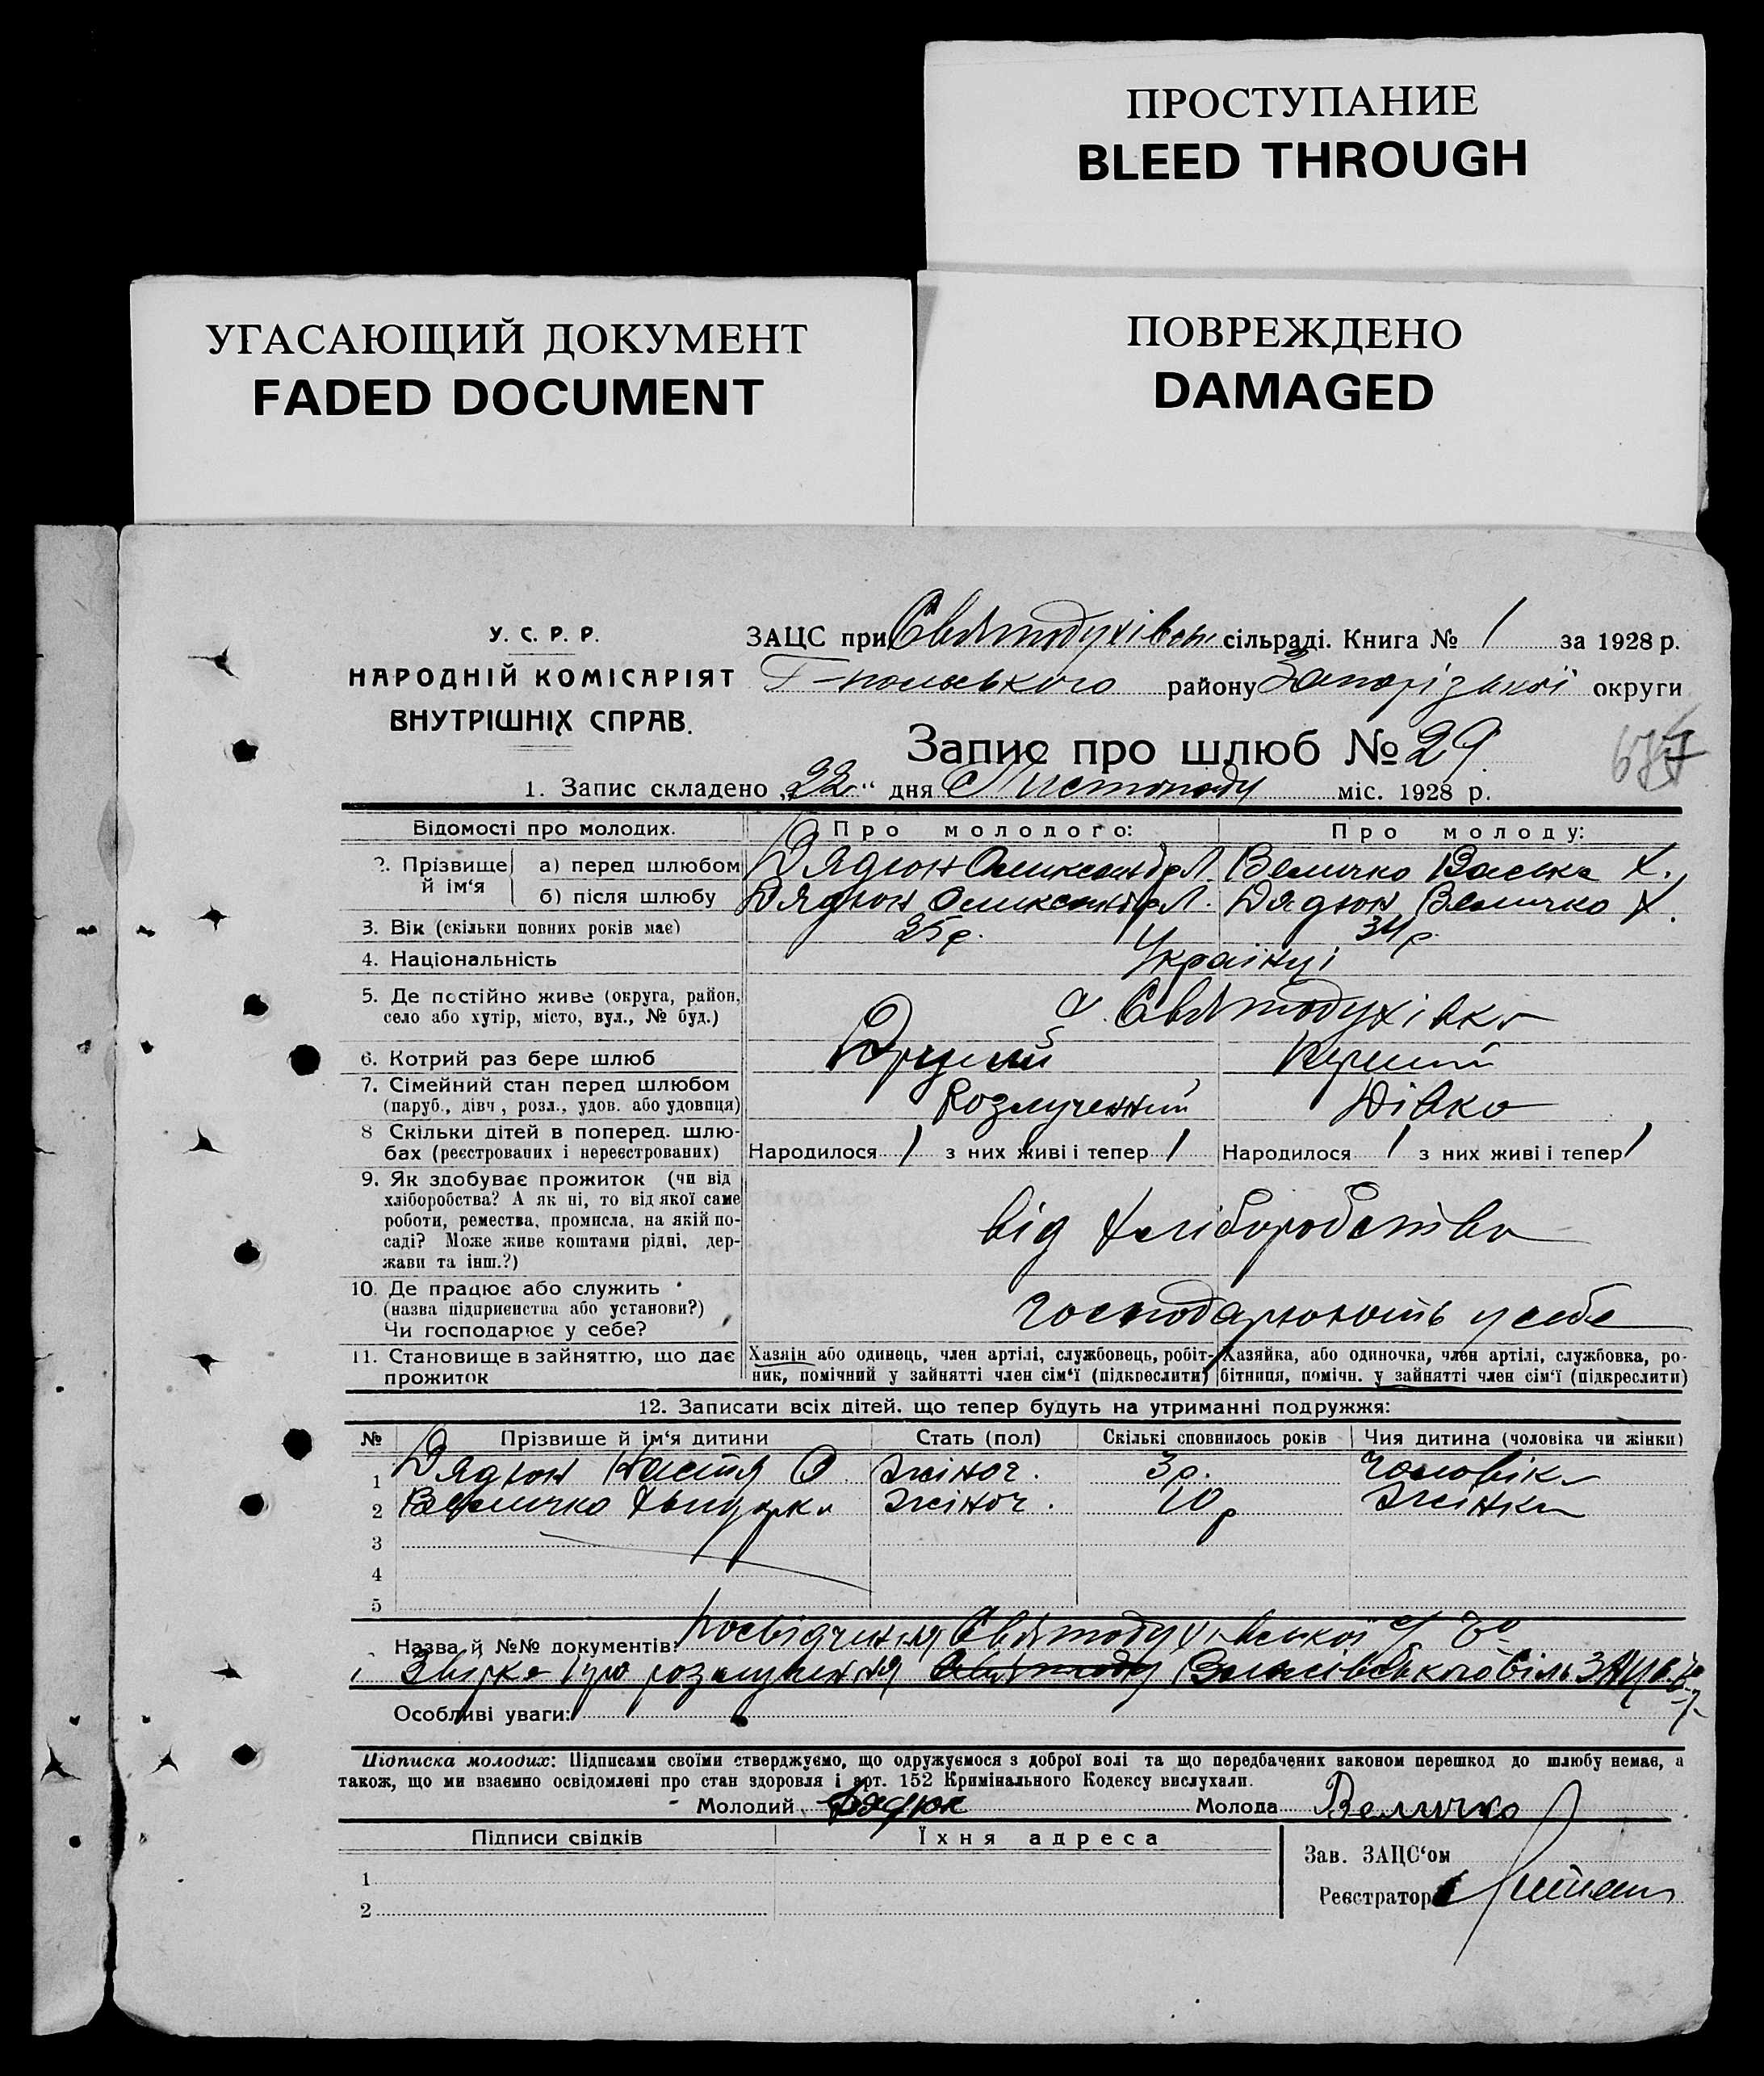 ПРОСТУПАНИЕ
BLEED THROUGH
УГАСАЮЩИЙ ДОКУМЕНТ
FADED DOCUMENT
ПОВРЕЖДЕНО
DAMAGED
У. С. Р. Р.
НАРОДНІЙ КОМІСАРІЯТ
ВНУТРІШНІХ СПРАВ.
ЗАЦС при Святодухівськ сільраді. Книга № 1 за 1928 р.
Г-польського району Запорізької округи
Запис про шлюб № 29
1. Запис складено „22" дня Листопаду міс. 1928 р.
Відомості про молодих. Про молодого: Про молоду:
2. Прізвище й ім'я а) перед шлюбом Дядюн Олександр Л. Величко Васька Х.
б) після шлюбу Дядюн Олександр Л. Дядюн Величко Х.
3. Вік (скільки повних років має) 25 р. 34 р.
4. Національність Українці
5. Де постійно живе (округа, район, село або хутір, місто, вул., № буд.) с. Святодухівка
6. Котрий раз бере шлюб Другий Перший
7. Сімейний стан перед шлюбом (паруб., дівч., розл., удов. або удовиця) Розлученний Дівка
8 Скільки дітей в поперед. шлюбах (реєстрованих і нереєстрованих) Народилося 1 з них живі і тепер 1 Народилося 1 з них живі і тепер 1
9. Як здобуває прожиток (чи від хліборобства? А як ні, то від якої саме роботи, ремества, промисла, на якій посаді? Може живе коштами рідні, держави та інш.?) від хліборобства
10. Де працює або служить (назва підприенства або установи?) Чи господарює у себе? господарюють у себе
11. Становище в зайняттю, що дає прожиток Хазяін або одинець, член артілі, службовець, робітник, помічний у зайнятті член сім'ї (підкреслити) Хазяйка, або одиночка, член артілі, службовка, робітниця, помічн. у зайнятті член сім'ї (підкреслити)
12. Записати всіх дітей, що тепер будуть на утриманні подружжя:
№ Прізвише й ім'я дитини Стать (пол) Скількі сповнилось років Чия дитина (чоловіка чи жінки)
1 Дядюн Настя О. жіноч. 3 р. Чоловіка
2 Величко жіноч. 10 р Жінки
3
4
5
Назва й №№ документів: Посвідчення Святодухівської с/
і про розлучення
Особливі уваги:
Підписка молодих: Підписами своїми стверджуємо, що одружуємося з доброї волі та що передбачених законом перешкод до шлюбу немає, а
також, що ми взаємно освідомлені про стан здоровля і арт. 152 Кримінального Кодексу вислухали.
Молодий Дядюк Молода Величко
Підписи свідків Їхня адреса
Зав. ЗАЦС'ом
1
Реєстратор
2